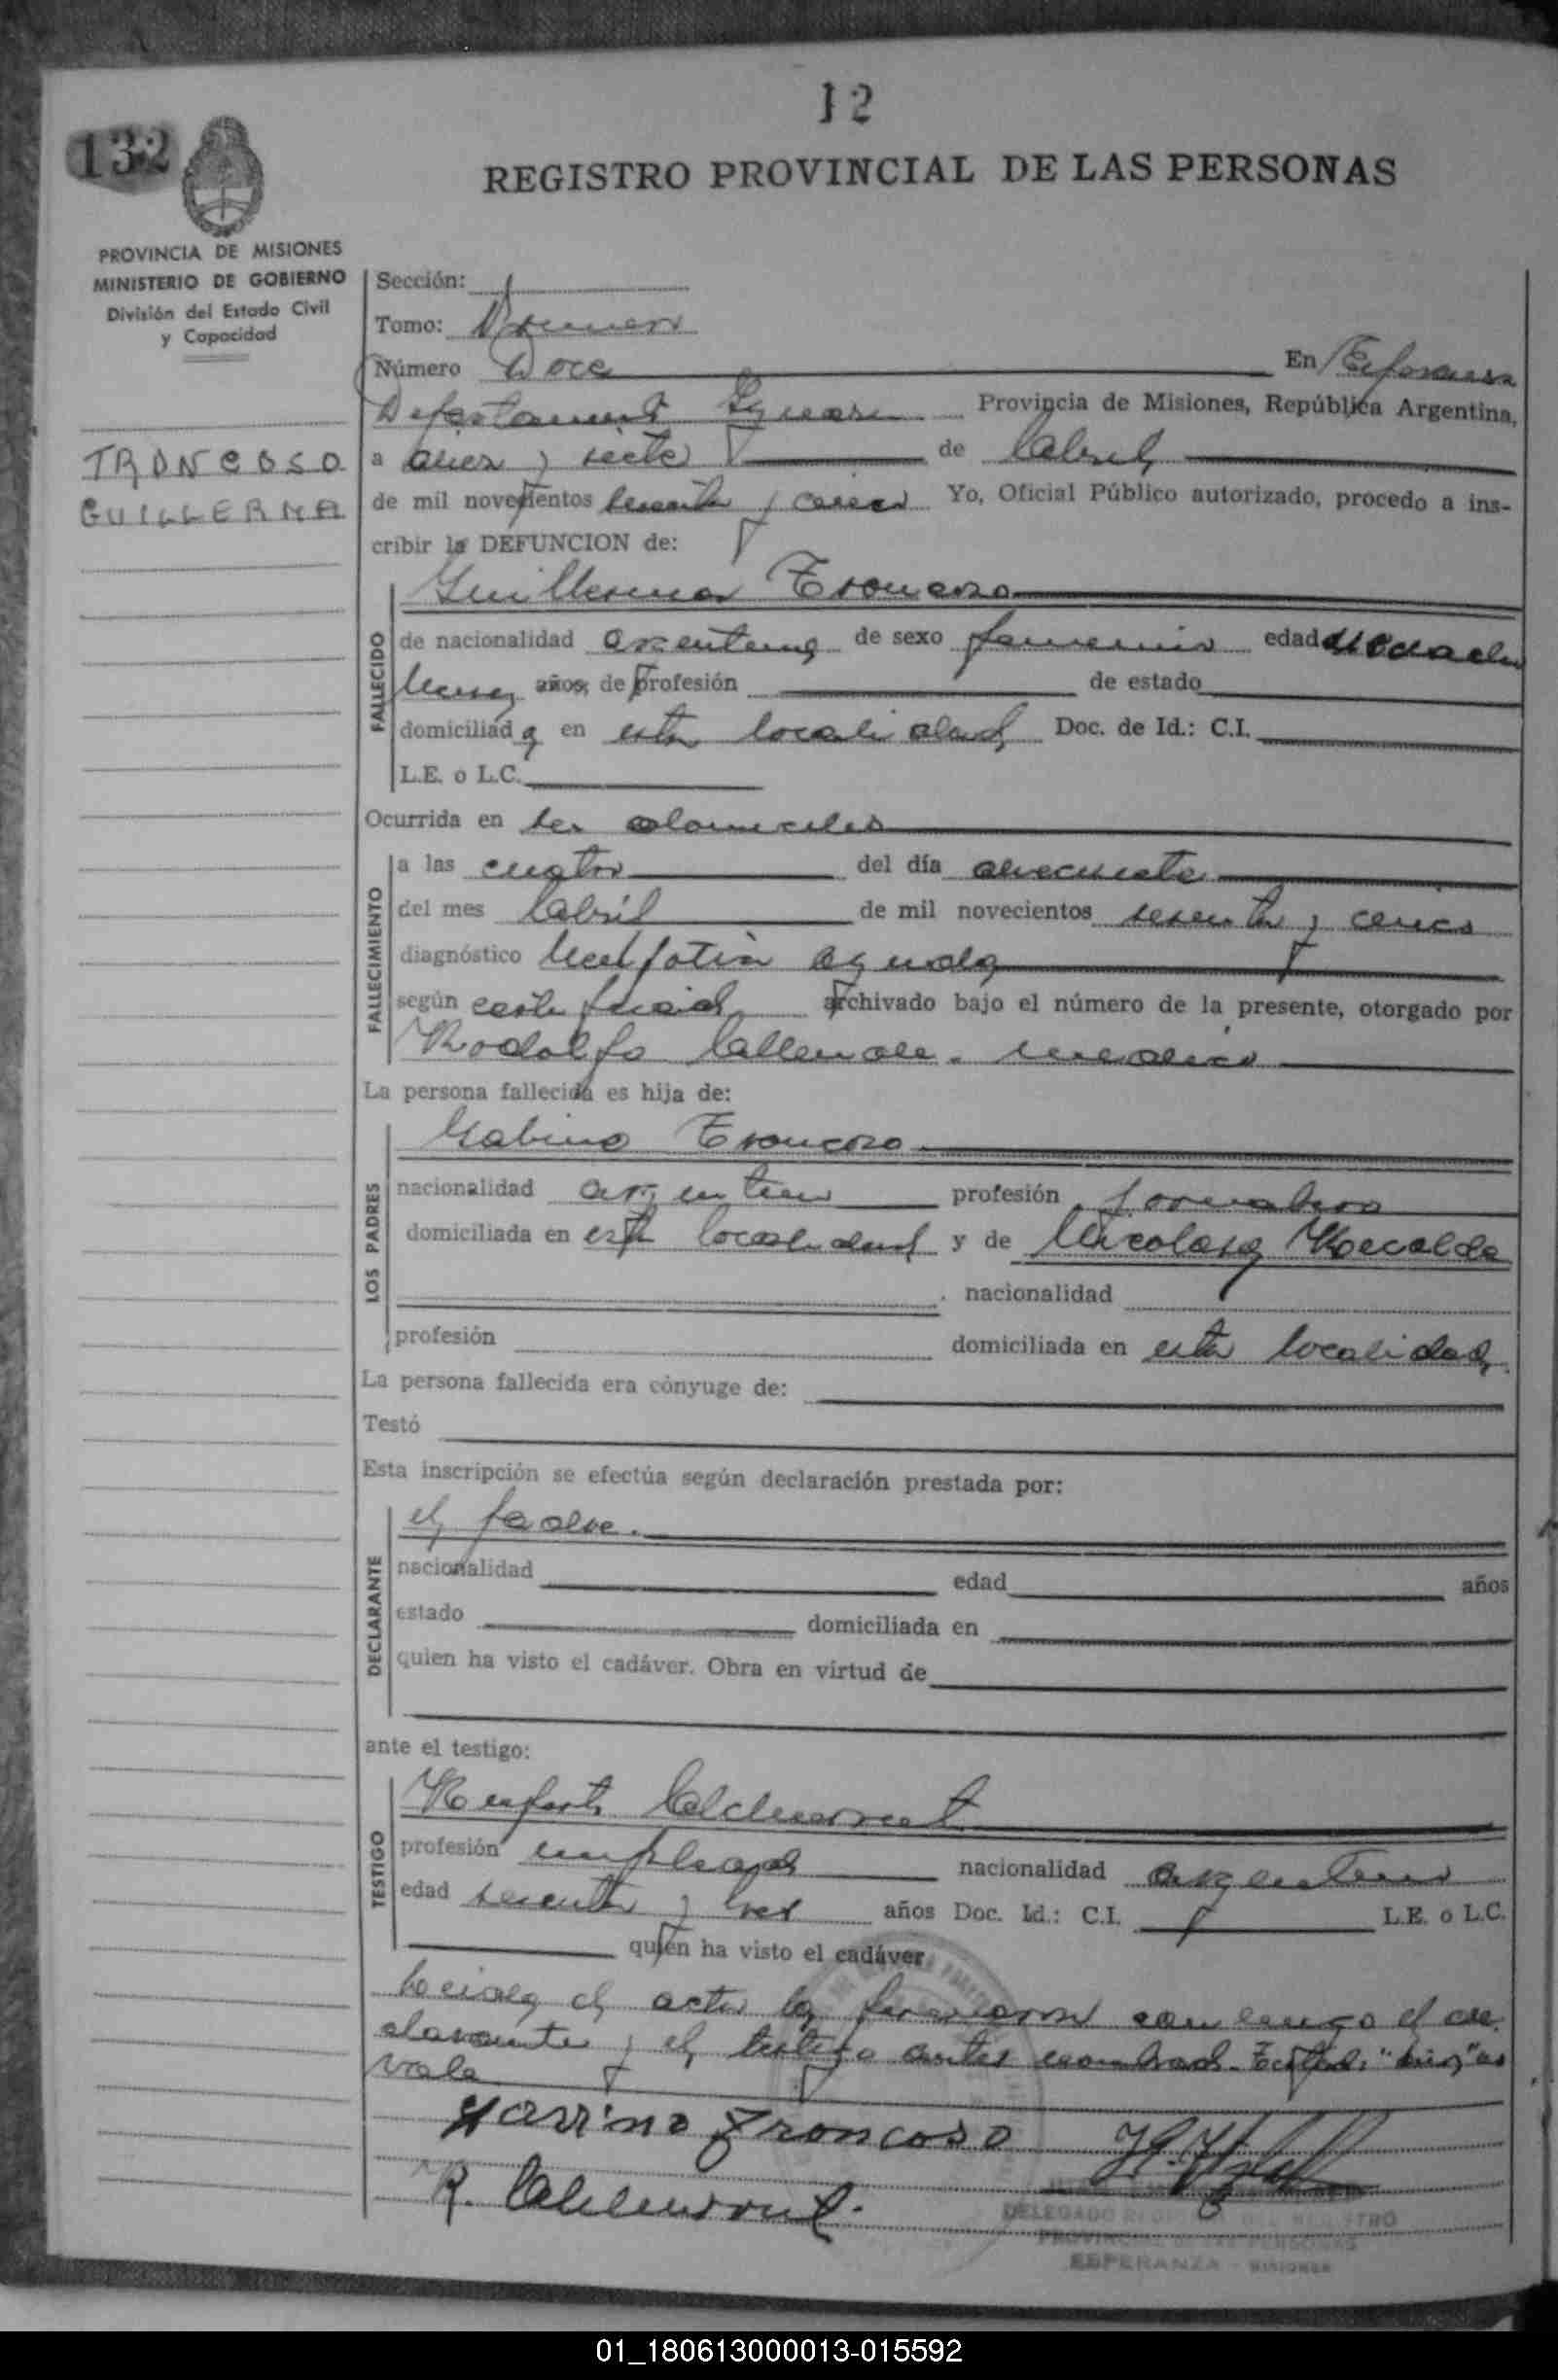 12
132
REGISTRO PROVINCIAL DE LAS PERSONAS
PROVINCIA DE MISIONES
MINISTERIO DE GOBIERNO
División del Estado Civil
y Capacidad
TRONCOSO
GUILLERMA
Sección:
Tomo: Primero
Número Doce En Esperanza
Departamento Iguazú Provincia de Misiones, República Argentina,
a diez y siete de abril
de mil novecientos sesenta y cinco Yo, Oficial Público autorizado, procedo a ins-
cribir la DEFUNCION de:
Guillerma Troncoso
FALLECIDO
de nacionalidad argentina de sexo femenino edad
años, de profesión de estado
domiciliad a en esta localidad Doc. de Id.: C.I.
L.E. o L.C.
Ocurrida en su domicilio
FALLECIMIENTO
a las cuatro del día diecisiete
del mes abril de mil novecientos sesenta y cinco
diagnóstico aguda
según certificado archivado bajo el número de la presente, otorgado por
Rodolfo medico
La persona fallecida es hija de:
LOS PADRES
Gabino Troncoso
nacionalidad argentino profesión jornalero
domiciliada en esta localidad y de Nicolasa Recalde
nacionalidad
profesión domiciliada en esta localidad
La persona fallecida era cónyuge de:
Testó
Esta inscripción se efectúa según declaración prestada por:
DECLARANTE
el padre.
nacionalidad edad años
estado domiciliada en
quien ha visto el cadáver. Obra en virtud de
ante el testigo:
TESTIGO
profesión empleado nacionalidad argentino
edad sesenta y tres años Doc. Id.: C.I. L.E. o L.C.
quien ha visto el cadáver
Leida el acta la firmaron conmigo el de-
clarante y el testigo antes nombrado. Testado:
vale
Troncoso
R.
DELEGADO
ESPERANZA - MISIONES
01_180613000013-015592